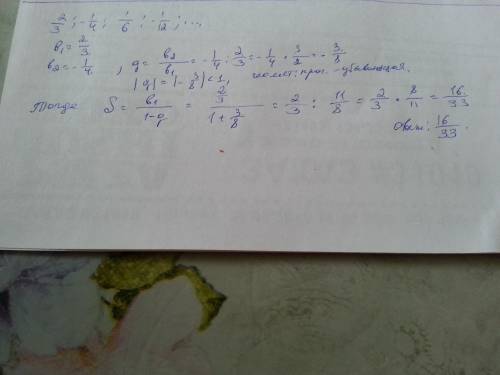 2/3; -1/4; 1/6; -1/12; ...,
b₁ = 2/3
b₂ = -1/4, q = b₂/b₁ = -1/4 : 2/3 = -1/4 * 3/2 = -3/8
|q| = |-3/8| < 1, геомет. прог. - убывающая.
Тогда S = b₁/(1-q) = (2/3)/(1 + 3/8) = 2/3 : 11/8 = 2/3 * 8/11 = 16/33
Ответ: 16/33.